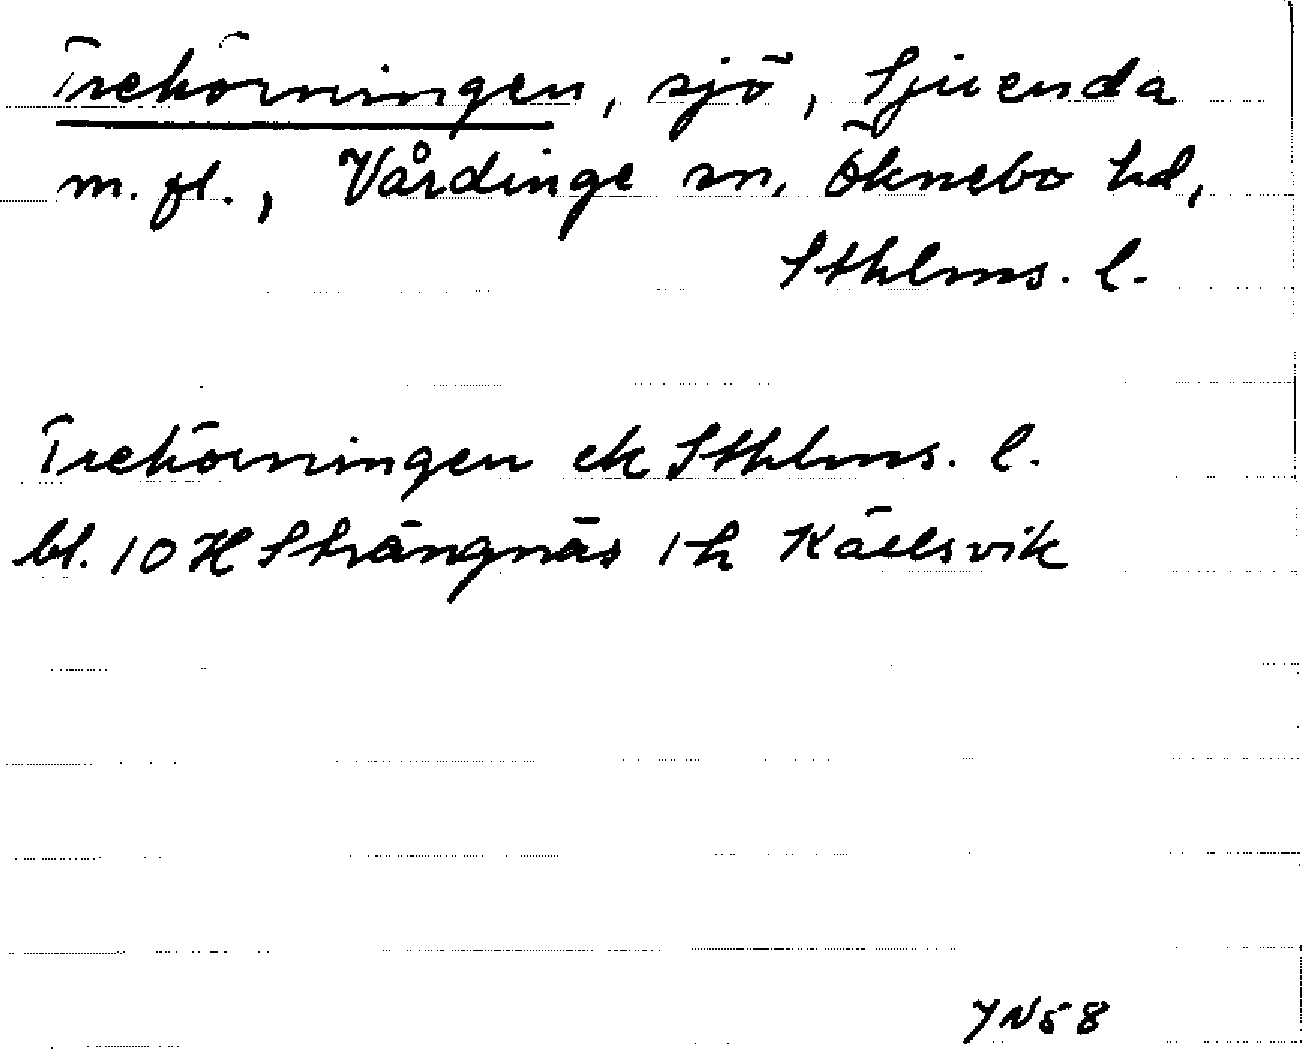 Trehörningen, sjö, Sjuenda
m. fl., Vårdinge sn, Öknebo hd,
Sthlms. l.
Trehörningen ek Sthlms. l.
bl. 10 H Strängnäs 1 h Källsvik
YN58